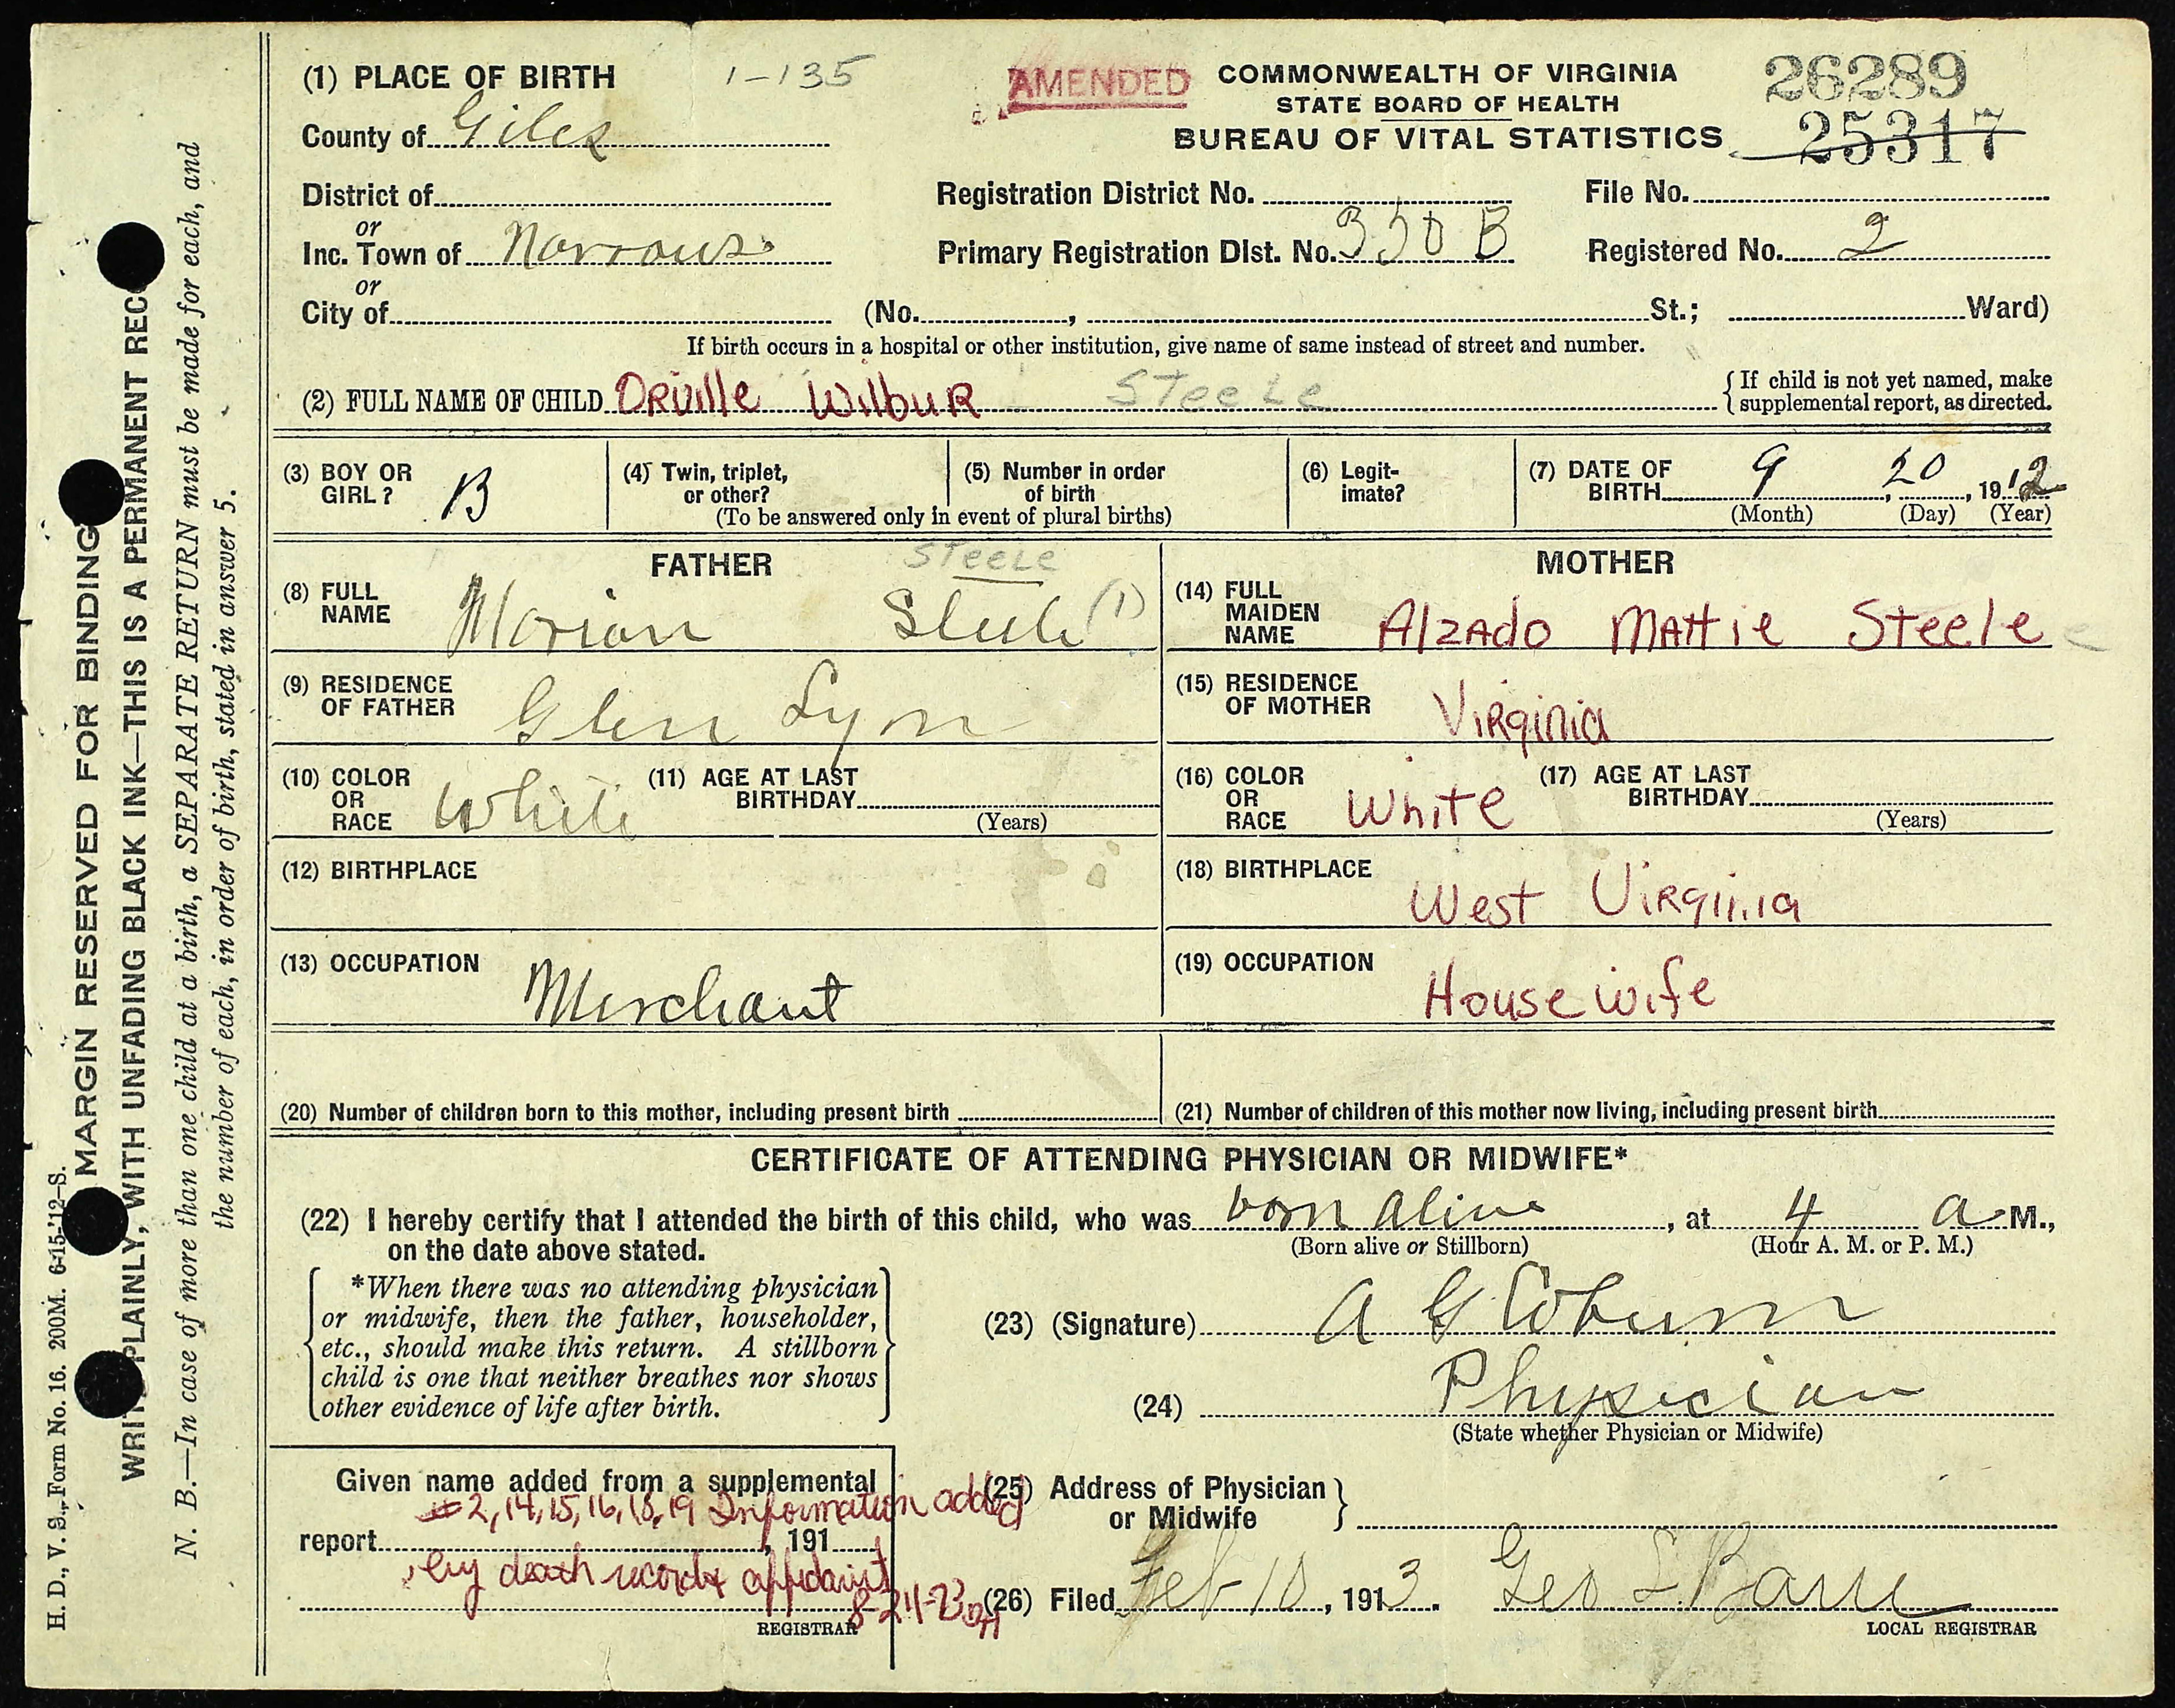 (1) PLACE OF BIRTH 1-135
AMENDED
COMMONWEALTH OF VIRGINIA
STATE BOARD OF HEALTH
BUREAU OF VITAL STATISTICS
26289
25317
County of Giles
District of
Registration District No.
File No.
or
Inc. Town of Narrows
Primary Registration Dist. No. 350 B
Registered No. 2
or
City of (No. , St.; Ward)
If birth occurs in a hospital or other institution, give name of same instead of street and number.
(2) FULL NAME OF CHILD ORville WilbuR Steele
{If child is not yet named, make
supplemental report, as directed.
(3) BOY OR GIRL? B
(4) Twin, triplet, or other?
(5) Number in order of birth
(To be answered only in event of plural births)
(6) Legit-imate?
(7) DATE OF BIRTH 9, 20, 1912
(Month) (Day) (Year)
FATHER
STEELE
(8) FULL NAME Marion Steele (1)
(9) RESIDENCE OF FATHER Glen Lyn
(10) COLOR OR RACE White
(11) AGE AT LAST BIRTHDAY
(Years)
(12) BIRTHPLACE
(13) OCCUPATION Merchant
MOTHER
(14) FULL MAIDEN NAME Alzado Mattie Steele e
(15) RESIDENCE OF MOTHER Virginia
(16) COLOR OR RACE White
(17) AGE AT LAST BIRTHDAY
(Years)
(18) BIRTHPLACE West Virginia
(19) OCCUPATION Housewife
(20) Number of children born to this mother, including present birth
(21) Number of children of this mother now living, including present birth
CERTIFICATE OF ATTENDING PHYSICIAN OR MIDWIFE*
(22) I hereby certify that I attended the birth of this child, who was born alive, at 4 a M.,
on the date above stated. (Born alive or Stillborn) (Hour A. M. or P. M.)
*When there was no attending physician
or midwife, then the father, householder,
etc., should make this return. A stillborn
child is one that neither breathes nor shows
other evidence of life after birth.
(23) (Signature) A G Coburn
(24) Physician
(State whether Physician or Midwife)
Given name added from a supplemental
#2, 14, 15, 16, 18, 19 Information added
report , 191
by death record & affidavit
8-24-73
REGISTRAR
(25) Address of Physician or Midwife}
(26) Filed Feb 10, 1913. Geo L Barr
LOCAL REGISTRAR
H. D., V. S., Form No. 16. 200M. 6-15-'12-S.
MARGIN RESERVED FOR BINDING
WRITE PLAINLY, WITH UNFADING BLACK INK—THIS IS A PERMANENT REC
N. B.—In case of more than one child at a birth, a SEPARATE RETURN must be made for each, and
the number of each, in order of birth, stated in answer 5.